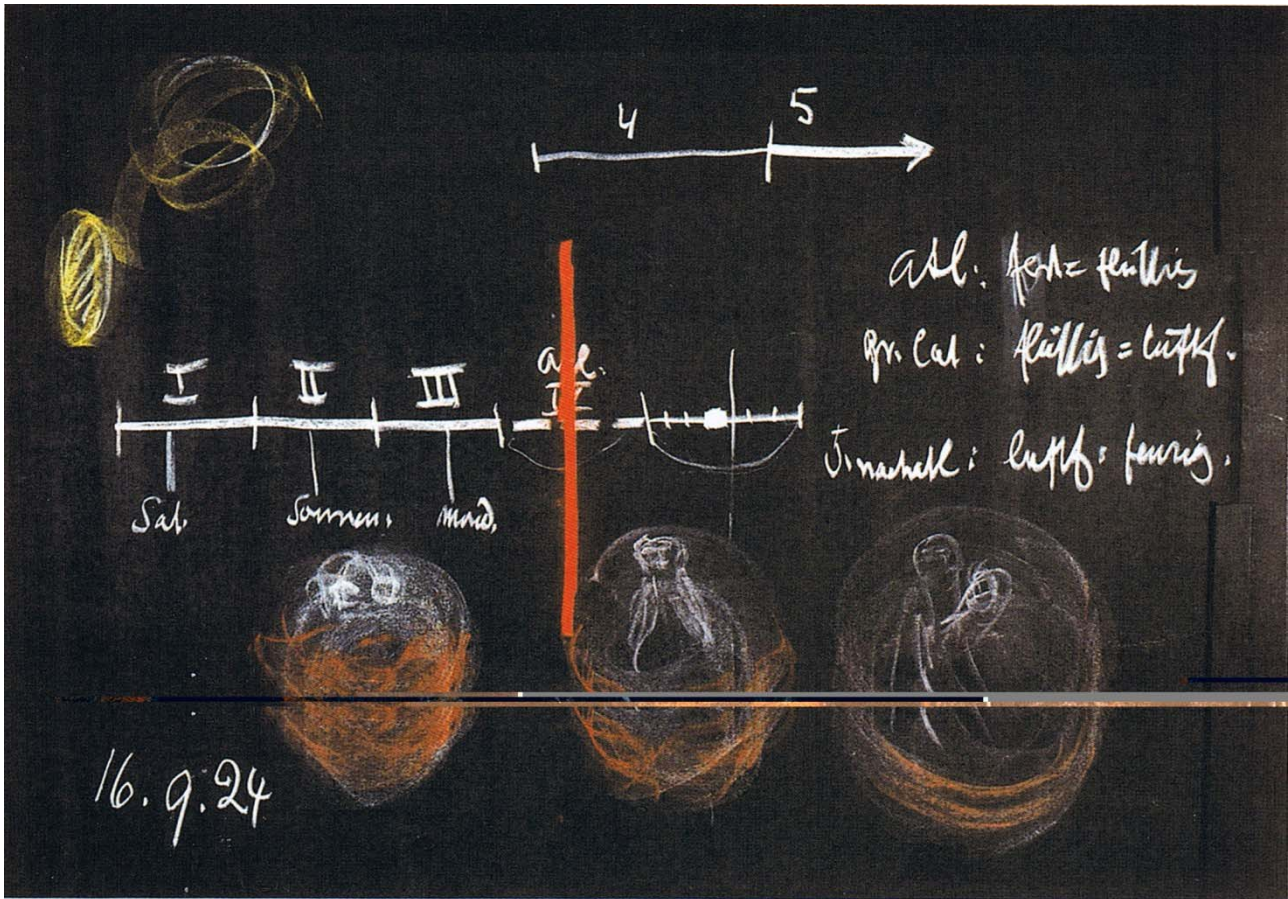 4 5
Atl: fest = flüssig
Gr. Cal: flüssig = luftf.
J. nachatl: luftf: feurig.
I II III Atl. IV
Sat. Sonnen. Mond.
16. 9. 24